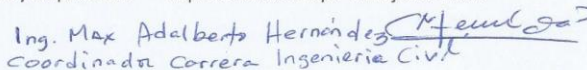 Ing. Max Adalberto Hernández
Coordinador Carrera Ingenieria Civil